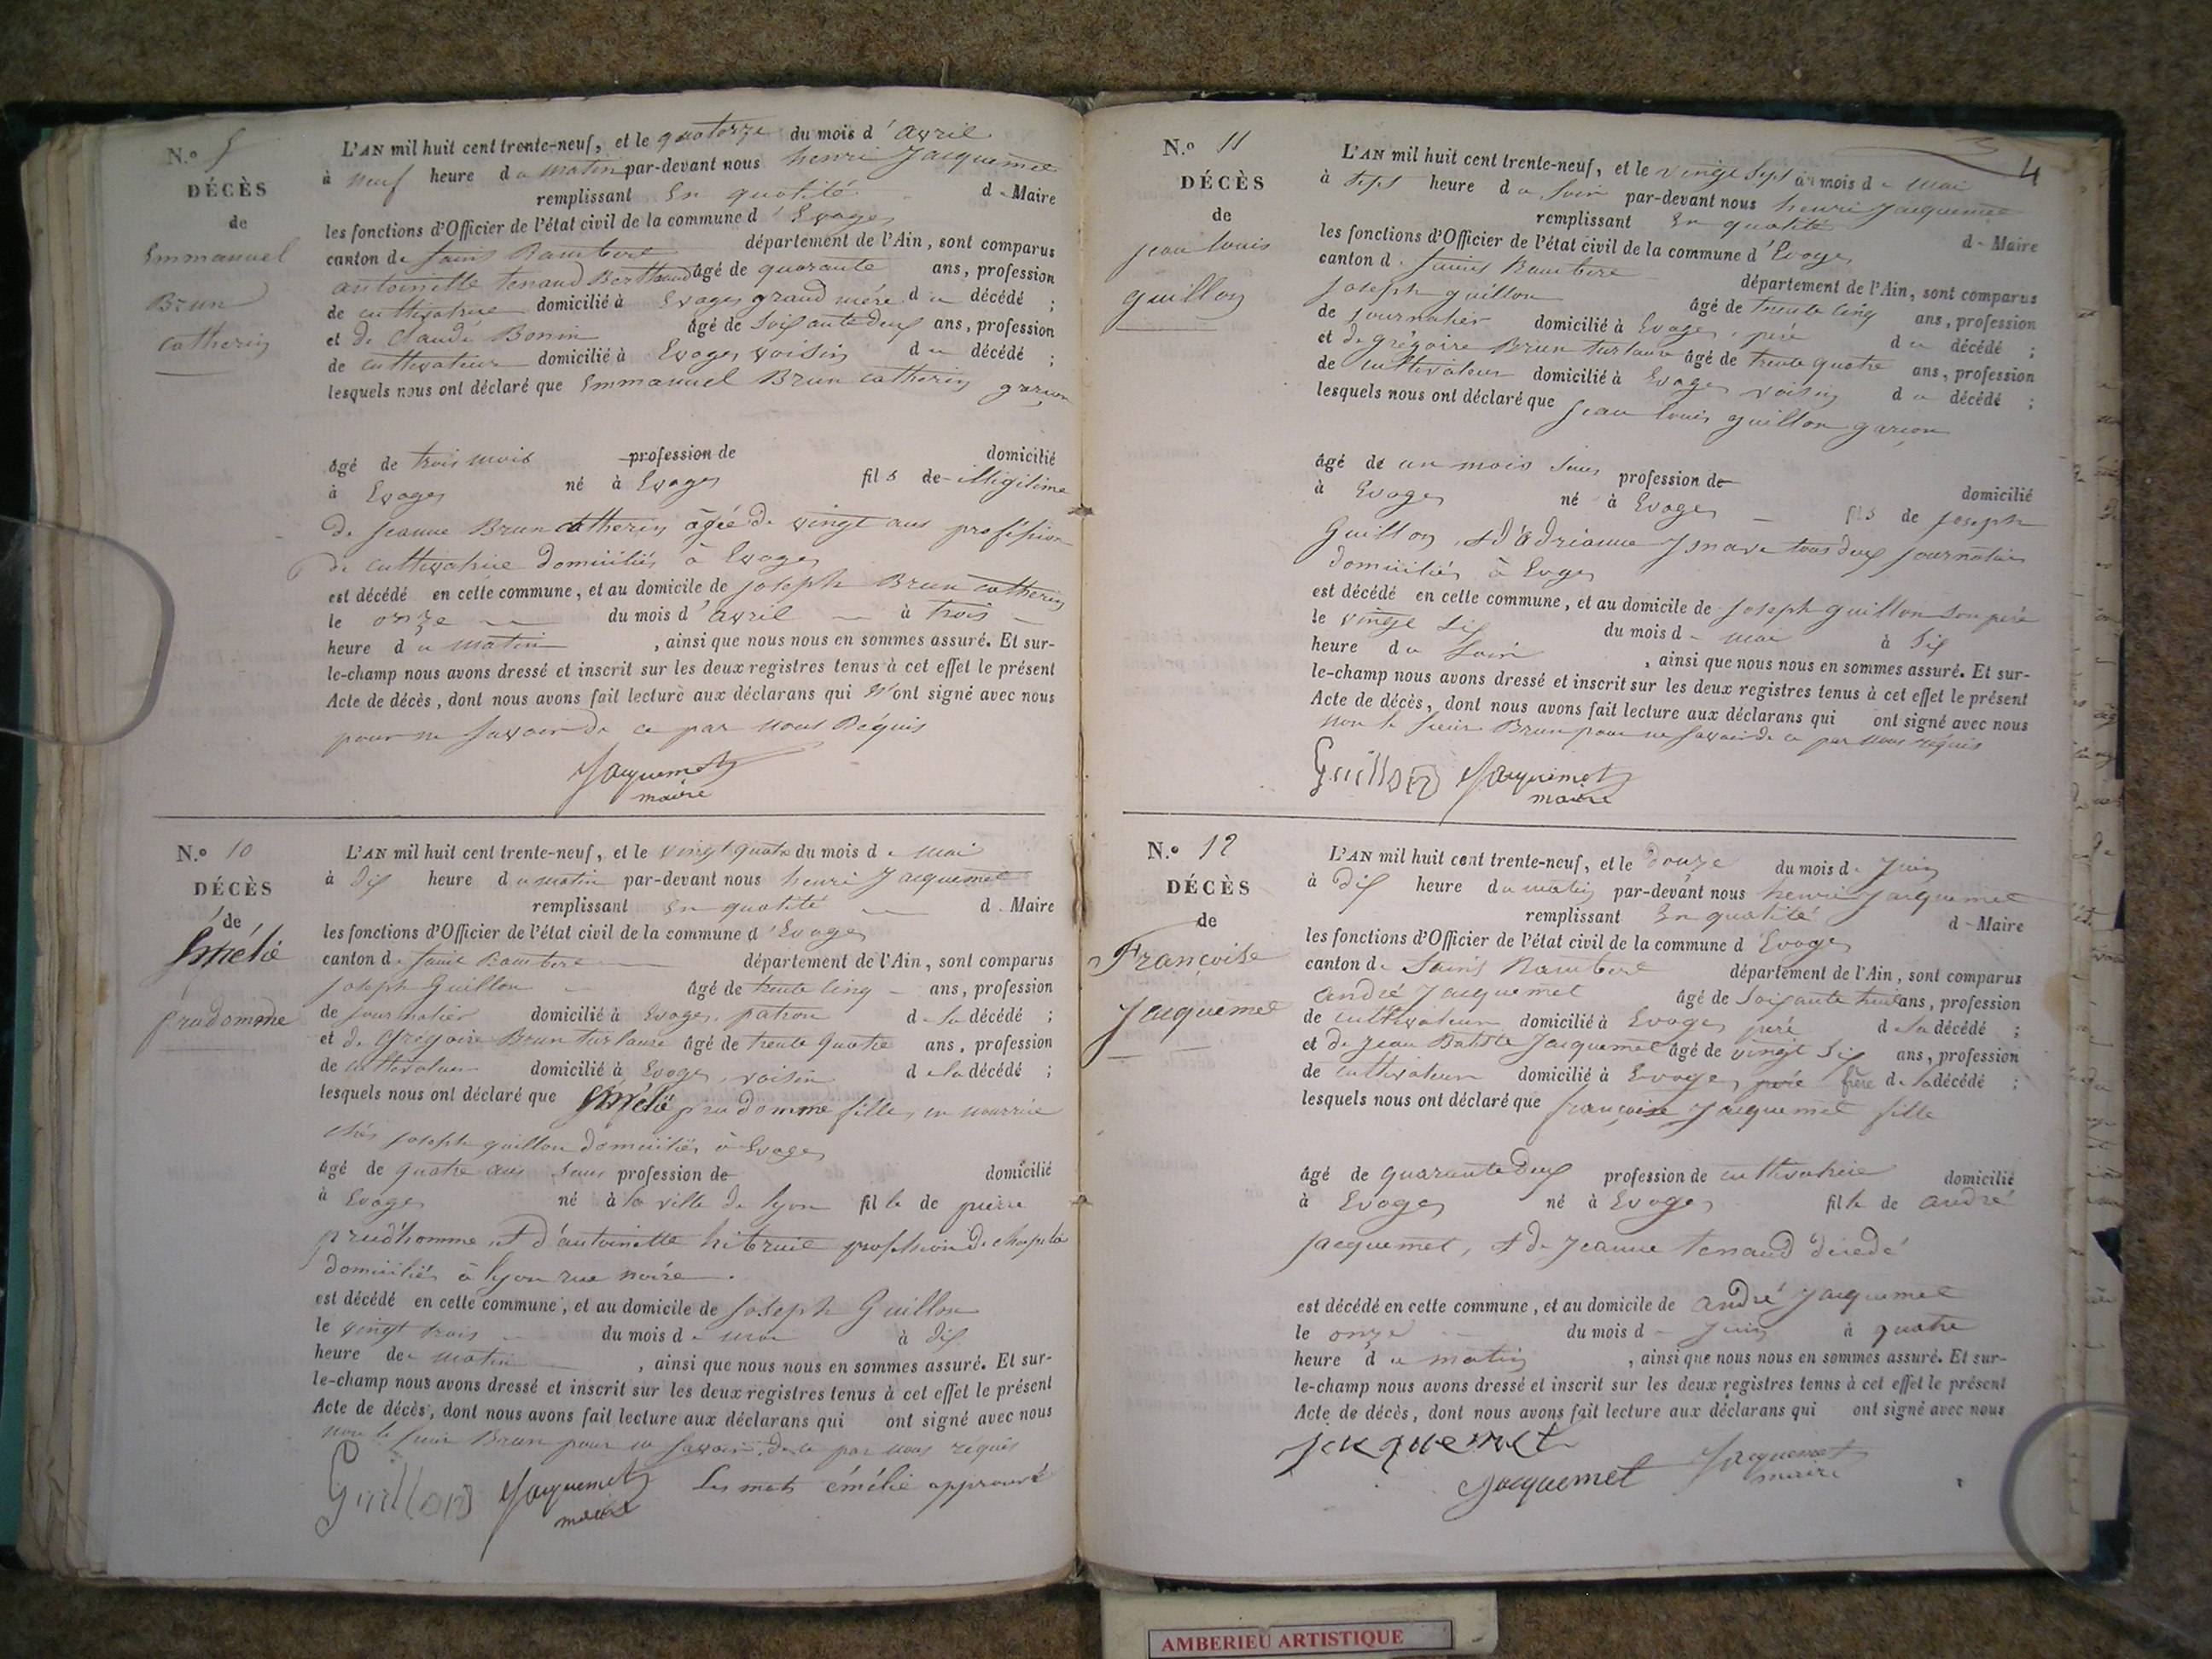 N.o 9
DÉCÈS
de
Emmanuel
Brun
Catherin
L'AN mil huit cent trente-neuf, et le quatorze du mois d'avril
à neuf heure du matin par-devant nous henri Jacquemet
remplissant En qualité de Maire
les fonctions d'Officier de l'état civil de la commune d'Evoges
canton de Saint Rambert département de l'Ain, sont comparus
antoinette tenand Berthaud âgé de quarante ans, profession
de cultivatrice domicilié à Evoges grand mére du décédé ;
et de Claude Bonin âgé de Soixante deux ans, profession
de cultivateur domicilié à Evoges voisin du décédé ;
lesquels nous ont déclaré que Emmanuel Brun catherin garçon
âgé de trois mois profession de domicilié
à Evoges né à Evoges fils de illigitime
de jeanne Brun catherin âgée de vingt ans profession
de cultivatrice domiciliés à Evoges
est décédé en cette commune, et au domicile de joseph Brun catherin
le onze du mois d'avril à trois
heure du matin , ainsi que nous nous en sommes assuré. Et sur-
le-champ nous avons dressé et inscrit sur les deux registres tenus à cet effet le présent
Acte de décès, dont nous avons fait lecture aux déclarans qui n'ont signé avec nous
pour ne savoir de ce par nous Réquis
Jacquemet
maire
N.o 10
DÉCÈS
de
émélié
prudomme
L'AN mil huit cent trente-neuf, et le vingt quatre du mois de mai
à dix heure du matin par-devant nous henri Jacquemet
remplissant En qualité d Maire
les fonctions d'Officier de l'état civil de la commune d'Evoges
canton de Saint Rambert département de l'Ain, sont comparus
joseph Guillon âgé de trente cinq ans, profession
de journalier domicilié à Evoges, patron de la décédé ;
et de Grégoire Brun turlaure âgé de trente quatre ans, profession
de cultivateur domicilié à Evoges, voisin de la décédé ;
lesquels nous ont déclaré que émélié prudomme fille, en nourrice
chés joseph guillon domiciliés à Evoges
âgé de quatre ans sans profession de domicilié
à Evoges né à la ville de lyon fille de pierre
prudhomme et d'antoinette profession de
domiciliés à lyon rue noire.
est décédé en cette commune, et au domicile de joseph Guillon
le vingt trois du mois de mai à dix
heure de matin , ainsi que nous nous en sommes assuré. Et sur-
le-champ nous avons dressé et inscrit sur les deux registres tenus à cet effet le présent
Acte de décès, dont nous avons fait lecture aux déclarans qui ont signé avec nous
non le sieur Brun pour ne savoir de ce par nous réquis
Guillon Jacquemet Les mots émélié approuvé
maire
4
N.o 11
DÉCÈS
de
jean louis
guillon
L'AN mil huit cent trente-neuf, et le vingt sept du mois de mai
à sept heure du soir par-devant nous henri Jacquemet
remplissant En qualité de Maire
les fonctions d'Officier de l'état civil de la commune d'Evoges
canton d. Saint Rambert département de l'Ain, sont comparus
joseph guillon âgé de trente cinq ans, profession
de journalier domicilié à Evoges, péré du décédé ;
et de grégoire Brun turlaure âgé de trente quatre ans, profession
de cultivateur domicilié à Evoges voisin du décédé ;
lesquels nous ont déclaré que jean louis guillon garçon
âgé de un mois sans profession de domicilié
à Evoges né à Evoges fils de joseph
Guillon, et d'adrianne tous deux journalier
domiciliés à Evoges
est décédé en cette commune, et au domicile de joseph guillon son péré
le vingt six du mois de mai à six
heure du soir , ainsi que nous nous en sommes assuré. Et sur-
le-champ nous avons dressé et inscrit sur les deux registres tenus à cet effet le présent
Acte de décès, dont nous avons fait lecture aux déclarans qui ont signé avec nous
non le sieur Brun pour ne savoir de ce par nous réquis
Guillon Jacquemet
maire
N.o 12
DÉCÈS
de
Françoise
Jacquemet
L'AN mil huit cent trente-neuf, et le douze du mois de juin
à dix heure du matin par-devant nous henri Jacquemet
remplissant En qualité de Maire
les fonctions d'Officier de l'état civil de la commune d'Evoges
canton de Saint Rambert département de l'Ain, sont comparus
andré Jacquemet âgé de Soixante huit ans, profession
de cultivateur domicilié à Evoges péré de la décédé ;
et de Jean Batiste Jacquemet âgé de vingt six ans, profession
de cultivateur domicilié à Evoges péré frère de la décédé ;
lesquels nous ont déclaré que françoise Jacquemet fille
âgé de quarante deux profession de cultivatrice domicilié
à Evoges né à Evoges fille de andré
jacquemet, et de jeanne tenand décédé
est décédé en cette commune, et au domicile de andré Jacquemet
le onze du mois de juin à quatre
heure du matin , ainsi que nous nous en sommes assuré. Et sur-
le-champ nous avons dressé et inscrit sur les deux registres tenus à cet effet le présent
Acte de décès, dont nous avons fait lecture aux déclarans qui ont signé avec nous
jacquemet
Jacquemet Jacquemet
maire
AMBERIEU ARTISTIQUE